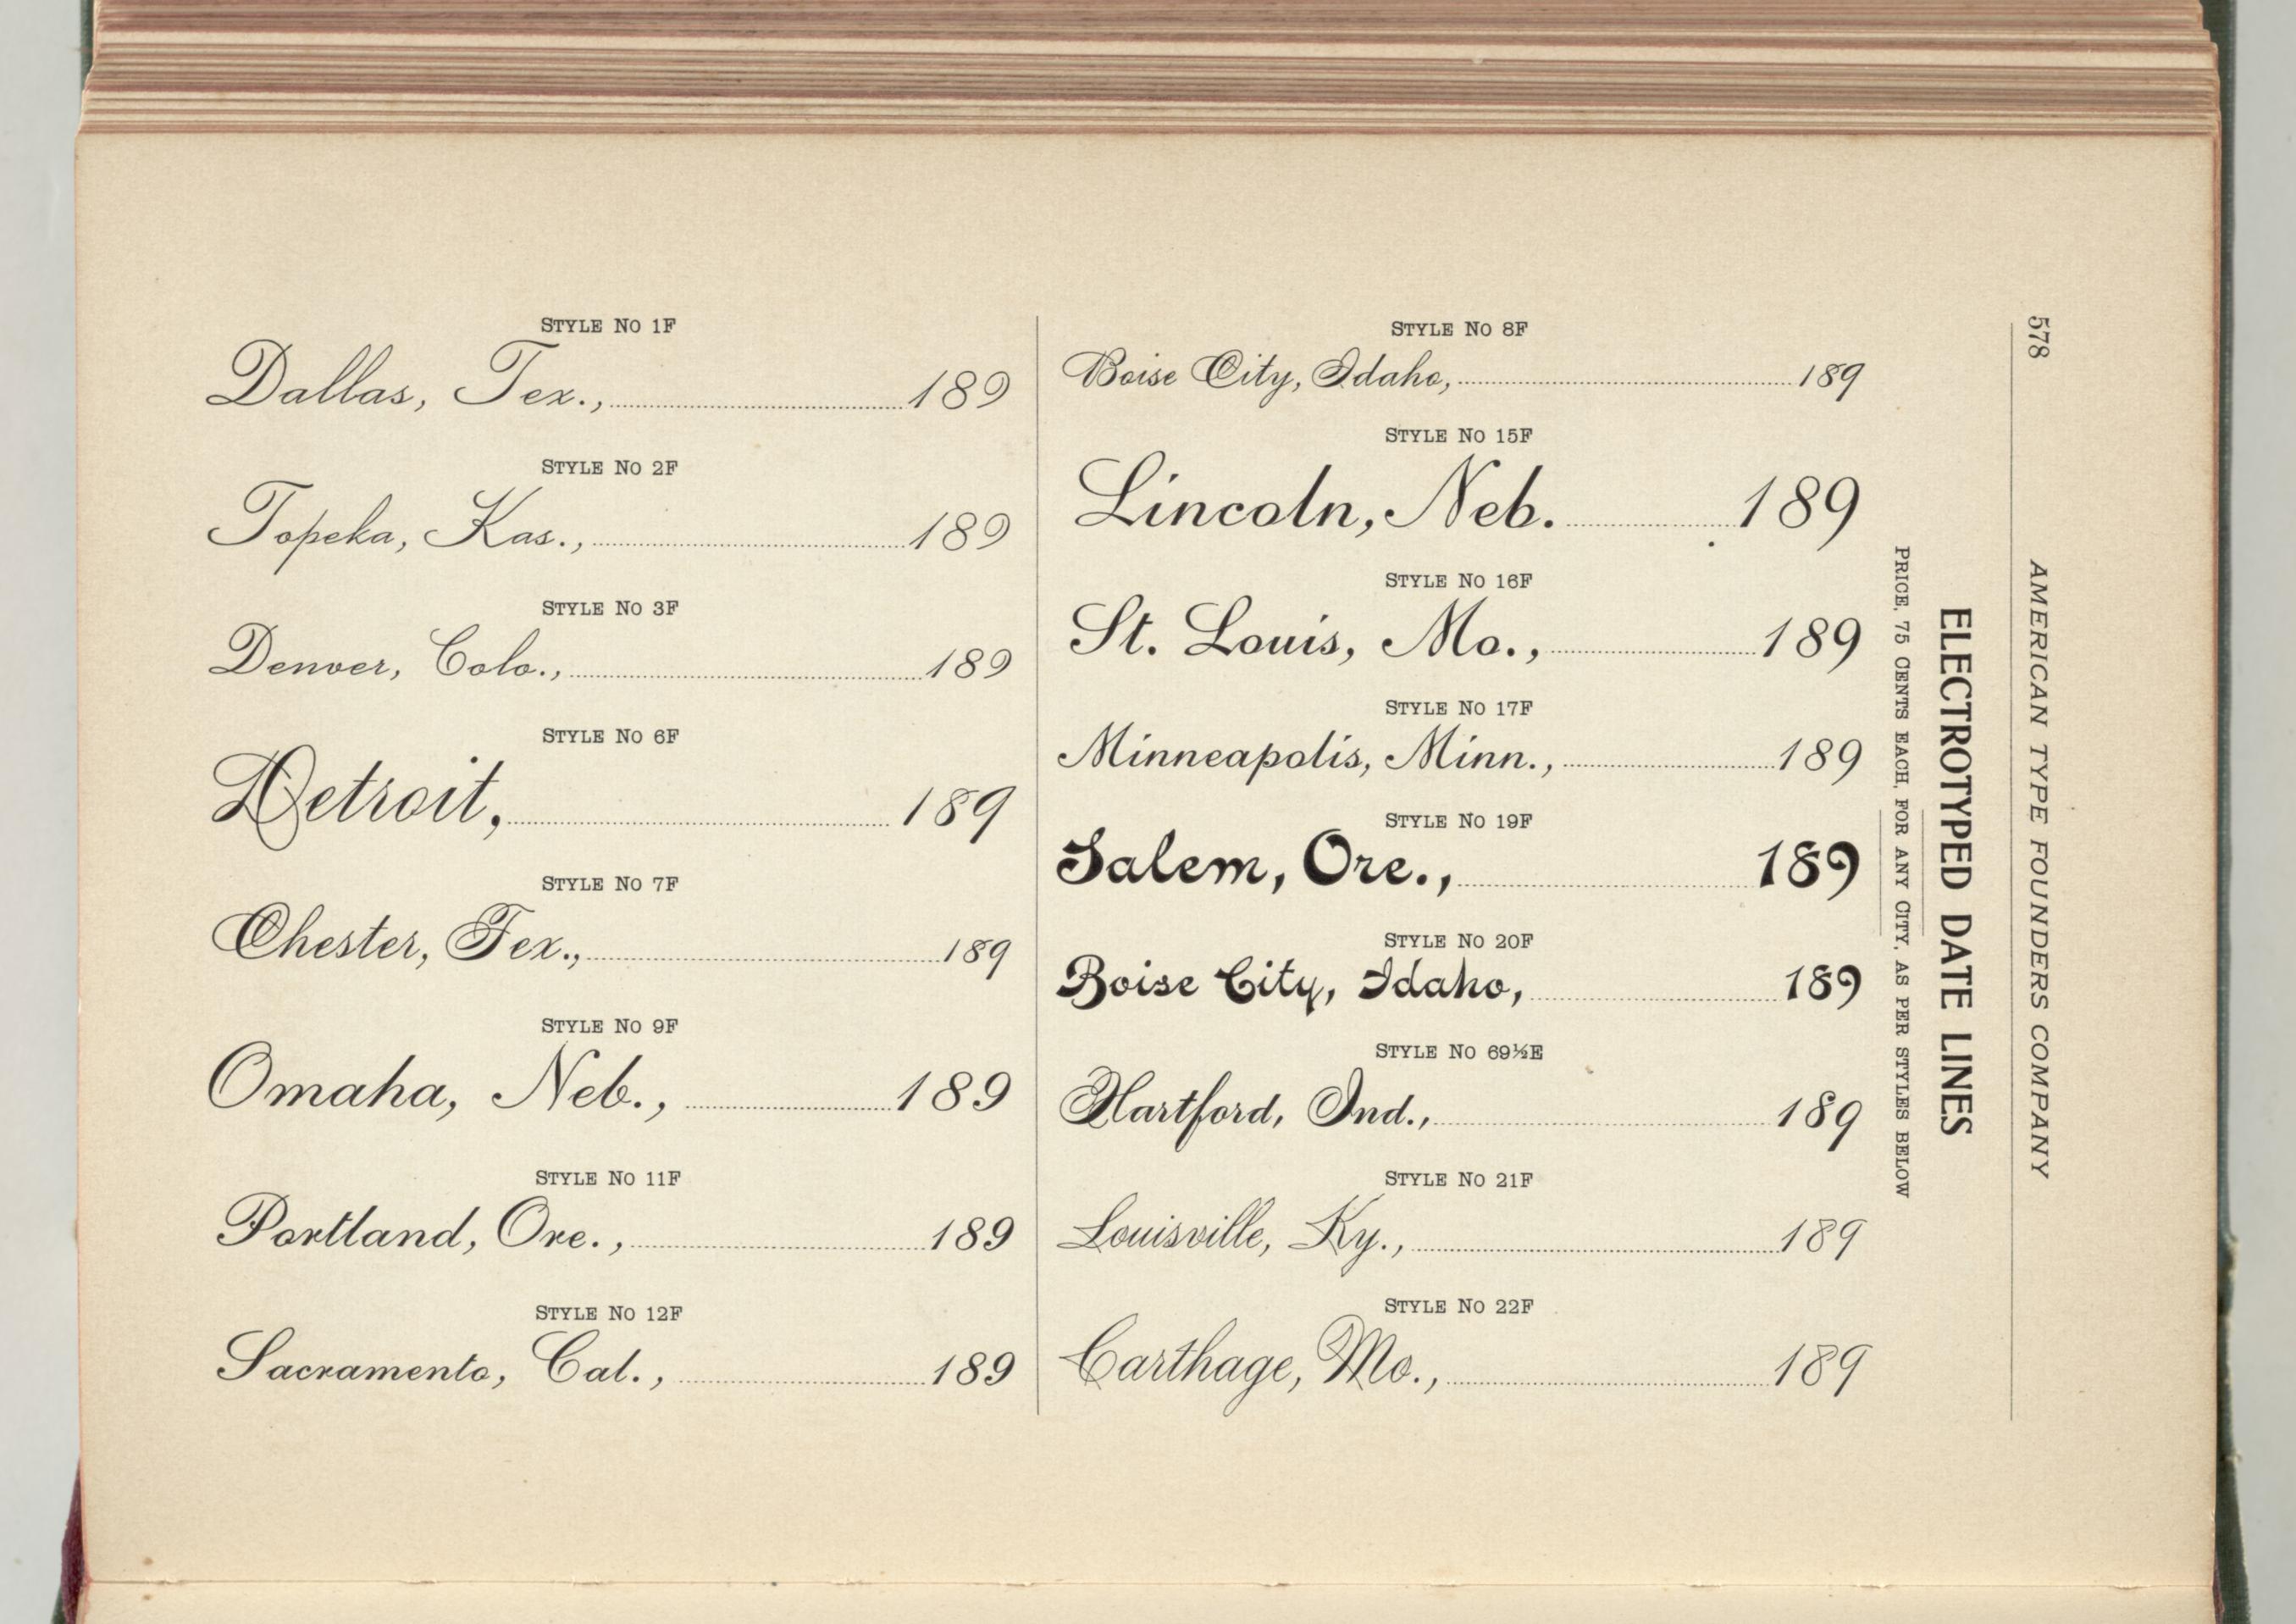 578
AMERICAN TYPE FOUNDERS COMPANY
ELECTROTYPED DATE LINES
PRICE, 75 CENTS EACH, FOR ANY CITY, AS PER STYLES BELOW
STYLE NO 1F
Dallas, Tex., 189
STYLE NO 2F
Topeka, Kas., 189
STYLE NO 3F
Denver, Colo., 189
STYLE NO 6F
Detroit, 189
STYLE NO 7F
Chester, Tex., 189
STYLE NO 9F
Omaha, Neb., 189
STYLE NO 11F
Portland, Ore., 189
STYLE NO 12F
Sacramento, Cal., 189
STYLE NO 8F
Boise City, Idaho, 189
STYLE NO 15F
Lincoln, Neb. 189
STYLE NO 16F
St. Louis, Mo., 189
STYLE NO 17F
Minneapolis, Minn., 189
STYLE NO 19F
Salem, Ore., 189
STYLE NO 20F
Boise City, Idaho, 189
STYLE NO 69½E
Hartford, Ind., 189
STYLE NO 21F
Louisville, Ky., 189
STYLE NO 22F
Carthage, Mo., 189